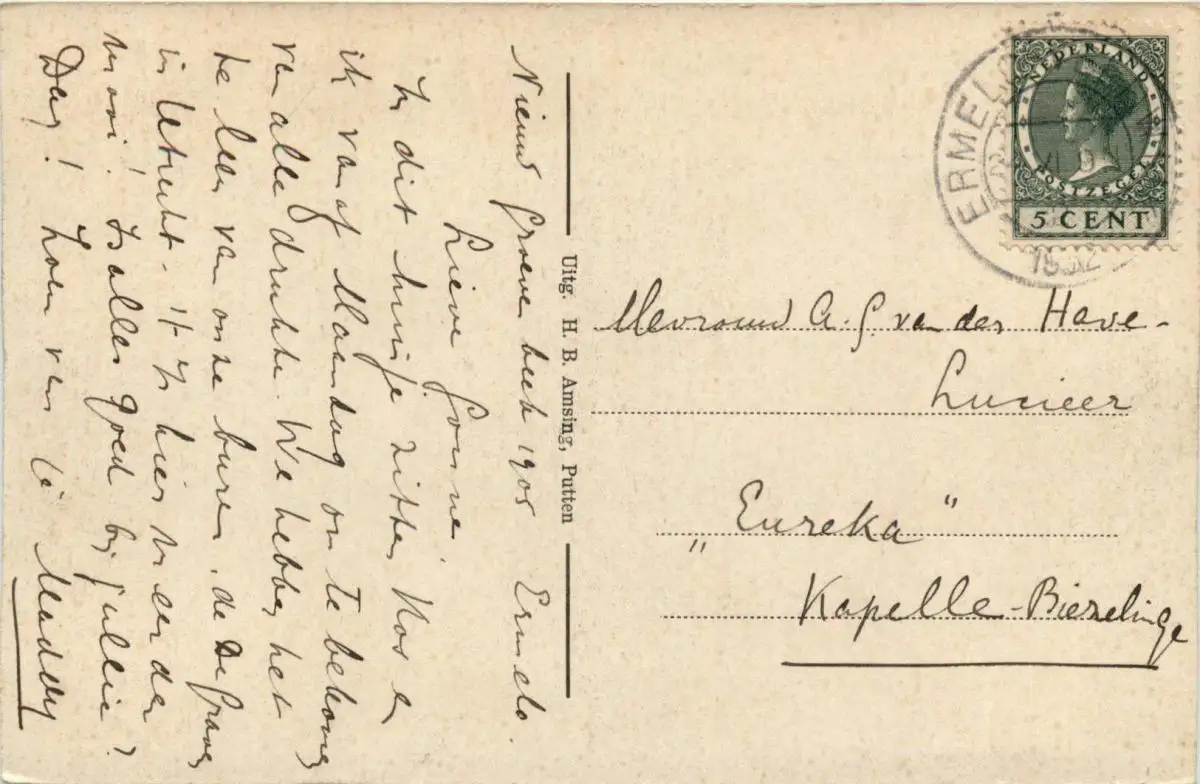 Nieuw Groevenbeek 1905 Ermelo.
Lieve Gonne,
In dit huisje zitten Kos en
ik vanaf Maandag om te bekomen
van alle drukte. We hebben het
te leen van onze buren, de De Graves
in Utrecht. 't Is hier meer dan
mooi! Is alles goed bij jullie?
Dag! Zoen van je Maddy
Uitg. H. B. Amsing, Putten
NEDERLAND
POSTZEGEL
5 CENT
ERMELO
1932
Mevrouw A. G. van der Have-
Lucieer
„Eureka"
Kapelle-Biezelinge